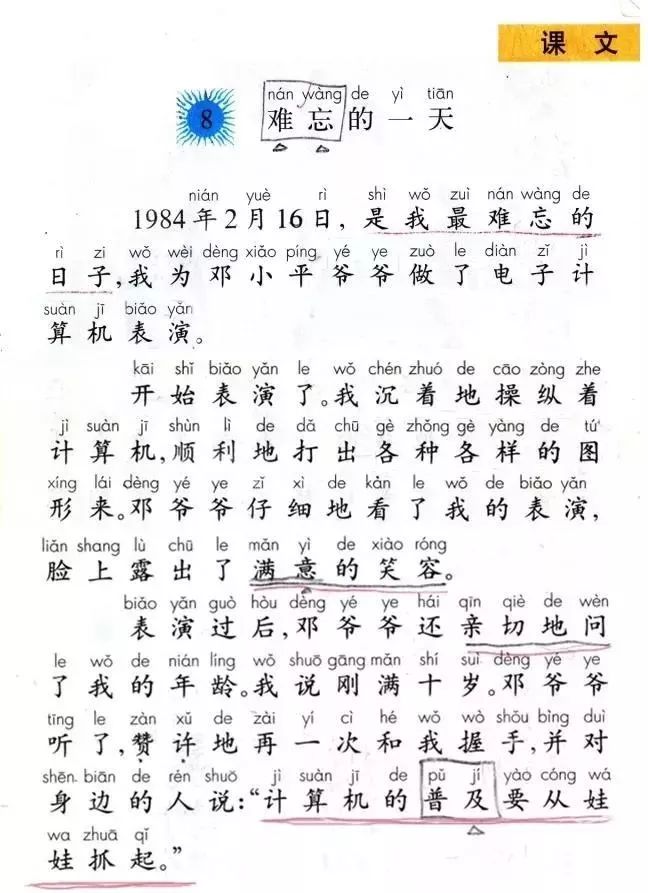 课文
nán wàng de yì tiān
8 难忘的一天
nián yuè rì shì wǒ zuì nán wàng de
1984年2月16日，是我最难忘的
rì zi wǒ wèi dèng xiǎo píng yé ye zuò le diàn zǐ jì
日子，我为邓小平爷爷做了电子计
suàn jī biǎo yǎn
算机表演。
kāi shǐ biǎo yǎn le wǒ chén zhuó de cāo zòng zhe
开始表演了。我沉着地操纵着
jì suàn jī shùn lì de dǎ chū gè zhǒng gè yàng de tú
计算机，顺利地打出各种各样的图
xíng lái dèng yé ye zǐ xì de kàn le wǒ de biǎo yǎn
形来。邓爷爷仔细地看了我的表演，
liǎn shang lù chū le mǎn yì de xiào róng
脸上露出了满意的笑容。
biǎo yǎn guò hòu dèng yé ye hái qīn qiè de wèn
表演过后，邓爷爷还亲切地问
le wǒ de nián líng wǒ shuō gāng mǎn shí suì dèng yé ye
了我的年龄。我说刚满十岁。邓爷爷
tīng le zàn xǔ de zài yí cì hé wǒ wò shǒu bìng duì
听了，赞许地再一次和我握手，并对
shēn biān de rén shuō jì suàn jī de pǔ jí yào cóng wá
身边的人说：“计算机的普及要从娃
wa zhuā qǐ
娃抓起。”